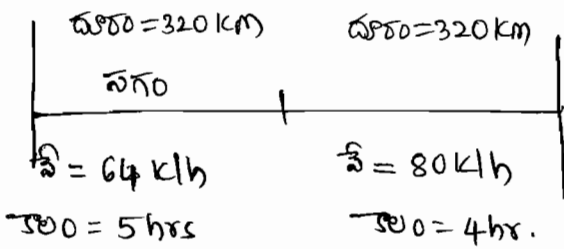 దూరం = 320 KM
దూరం = 320 KM
సగం
వే = 64 K/h
వే = 80 K/h
కాలం = 5 hrs
కాలం = 4 hr.